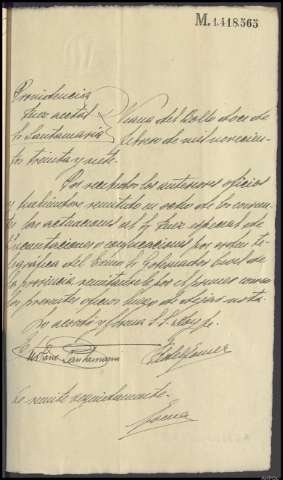 M.1.418.563
Providencia
Juez acctal
Sr Santamaria
Viana del Bollo doce de
febrero de mil novecien-
tos treinta y siete.
Por recibidos los anteriores oficios
y habiendose remitido
las actuaciones al Sr Juez especial de
Incautaciones por orden te-
legráfica del Excmo Sr Gobernador Civil de
la provincia, remitanse por el primer correo
los presentes oficios luego de dejar nota.
Lo acordó y firma S.S. doy fe.
Santamaria
Se remite seguidamente.